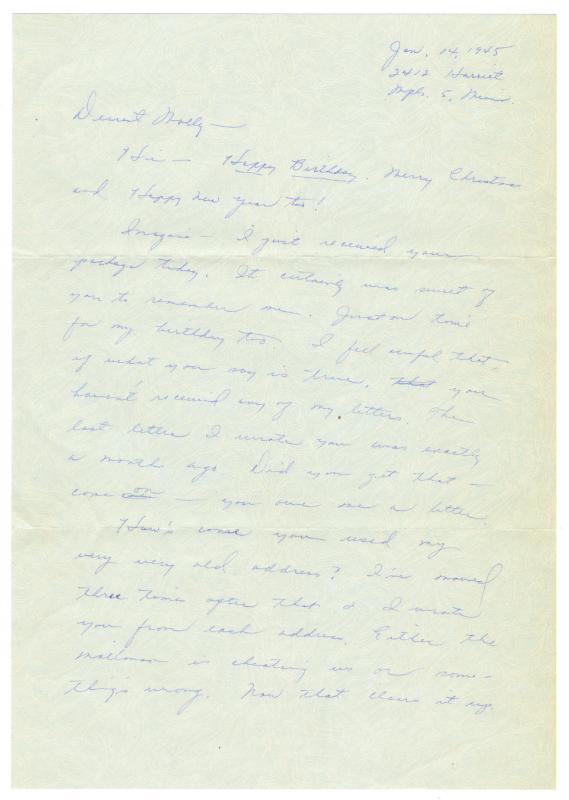 Jan. 14, 1945
2412 Harriet
Mpls. 5, Minn.
Dearest Molly—
Hi — Happy Birthday, Merry Christmas
and Happy New Year too!
Imagine — I just received your
package today. It certainly was sweet of
you to remember me. Just on time
for my birthday too. I feel awful that,
if what you say is true, that you
haven't received any of my letters. The
last letter I wrote you was exactly
a month ago. Did you get that —
come on — you owe me a letter.
How's come you used my
very very old address? I've moved
three times after that & I wrote
you from each address. Either the
mailman is cheating us or some-
thing's wrong. Now that clears it up.